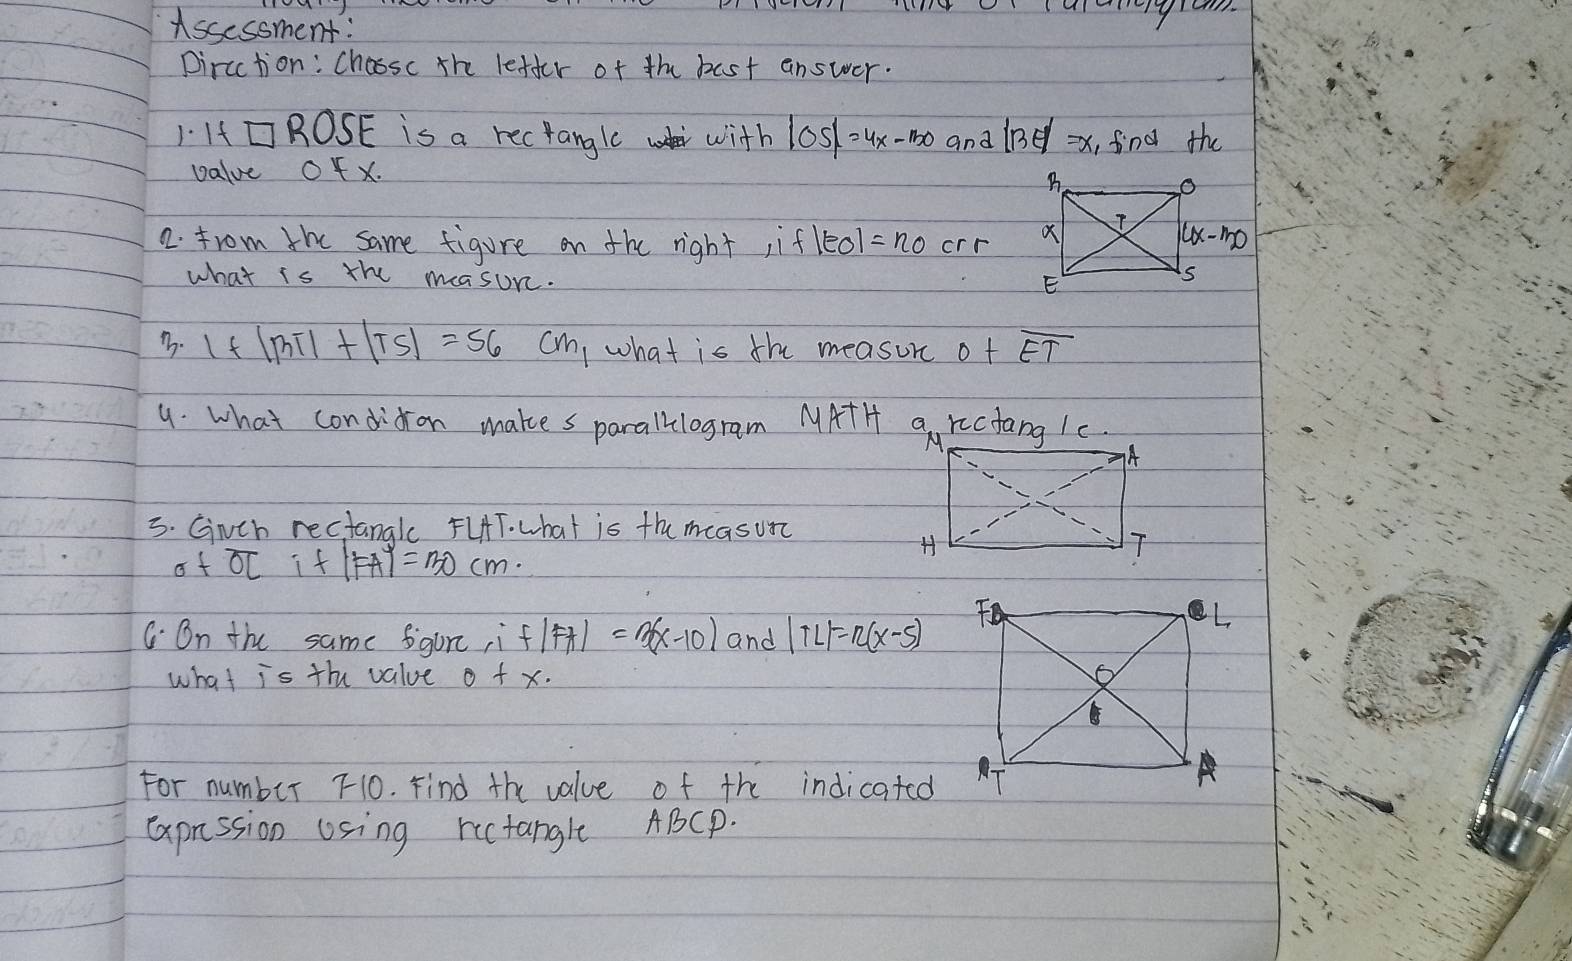 Assessment:
Direction: Choose the letter of the best answer.
1. If □ ROSE is a rectangle with |OS| = 4x-30 and |RE| = x, find the
value of x.
R O
T
x 4x-30
E S
2. From the same figure on the right, if |EO| = 20 cm
what is the measure.
3. If |RT| + |TS| = 56 cm, what is the measure of ET
4. What condition makes parallelogram MATH a rectangle.
M A
H T
5. Given rectangle FLAT. what is the measure
of OL if |FA| = 30 cm.
F L
O
T A
6. On the same figure, if |FA| = 3(x-10) and |TL| = 2(x-5)
what is the value of x.
For number 7-10. Find the value of the indicated
expression using rectangle ABCD.